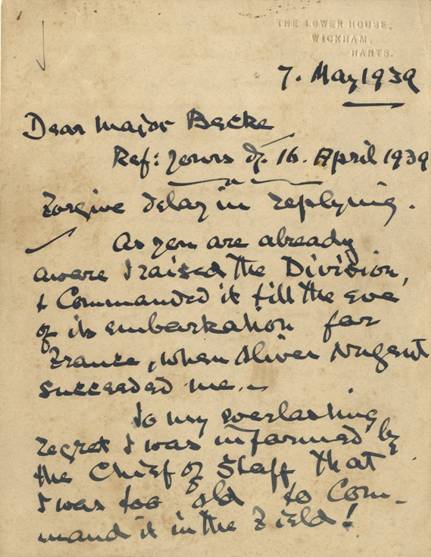 THE LOWER HOUSE,
WICKHAM,
HANTS.
7. May 1939
Dear Major Becke
Ref: yours of 16. April 1939
Forgive delay in replying.
As you are already
aware I raised the Division,
& Commanded it till the eve
of its embarkation for
France, when Oliver Nugent
succeeded me.
To my everlasting
regret I was informed by
the Chief of Staff that
I was too old to Com-
mand it in the Field!